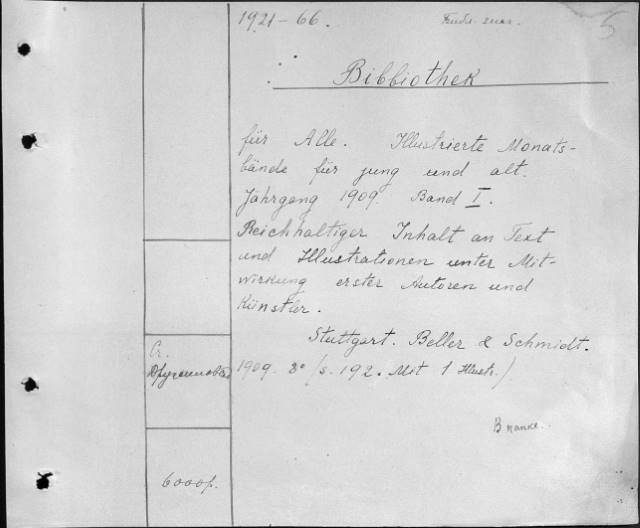 1921-66.
5
Bibliothek
für Alle. Illustrierte Monats-
bände für jung und alt.
Jahrgang 1909. Band I.
Reichhaltiger Inhalt an Text
und Illustrationen unter Mit-
wirkung erster Autoren und
Künstler.
Stuttgart. Beller & Schmidt.
1909. 8° (S. 192. Mit 1 Illustr.)
Ст.
В папке.
6000р.